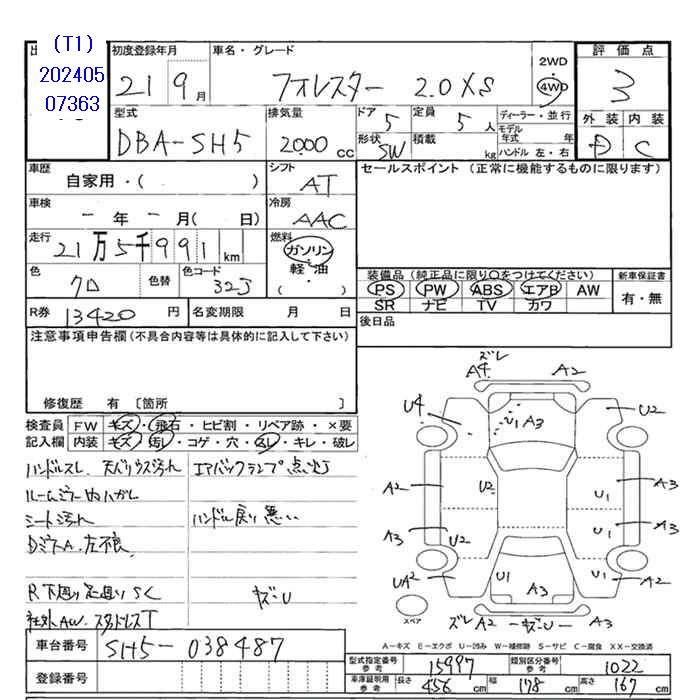 (T1)
202405
07363
初度登録年月
21 9月
車名・グレード
フォレスター 2.0XS
2WD
4WD
評価点
3
外装 内装
D C
型式
DBA-SH5
排気量
2000 cc
ドア
5
定員
5 人
形状
SW
積載
kg
ディーラー・並行
モデル年式 年
ハンドル 左・右
車歴
自家用・( )
シフト
AT
セールスポイント (正常に機能するものに限ります)
車検
ー年ー月( 日)
冷房
AAC
走行
21万5千991km
燃料
ガソリン
軽油
( ・ )
色
クロ
色替
色コード
32J
装備品(純正品に限り○をつけてください)
新車保証書
PS PW ABS エアB AW
SR ナビ TV カワ
有・無
R券 13420 円
名変期限 月 日
後日品
注意事項申告欄(不具合内容等は具体的に記入して下さい)
修復歴 有 〔箇所 〕
検査員記入欄
FW キズ・飛石・ヒビ割・リペア跡・×要
内装 キズ・汚レ・コゲ・穴・スレ・キレ・破レ
ハンドルスレ. 天バリウス汚れ エアバックランプ点灯
ルームミラー内ハガレ
シート汚れ ハンドル戻り悪い
DミラーA. 左不良
R下廻り足廻りSC キズ・U
社外AW. スタッドレスT
ズレ
A4 A2
U4 U2
U1 A3
A2 U2 U1 A3
A3 U2 U1 A3
UA2 U1 A3 U1 A2
スペア
ズレ A2 ーキズ・Uー A3
A-キズ E-エクボ U-凹み W-補修跡 S-サビ C-腐食 XX-交換済
車台番号 SH5-038487
登録番号
型式指定番号 参考 15997
類別区分番号 参考 1022
車庫証明用 参考 長さ 456 cm 幅 178 cm 高さ 167 cm